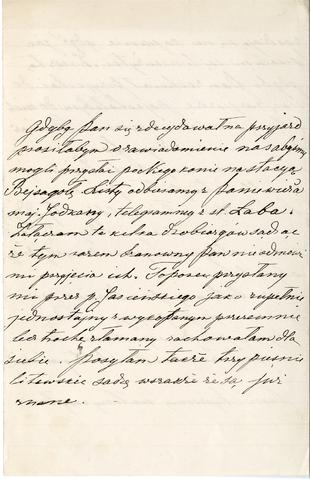 Gdyby Pan się zdecydował na przyjazd
prosiłabym o zawiadomienie nas abyśmy
mogli przysłać po niego konie na stacyę
Bejsagoła. Listy odbieramy z Poniewieża
maj. Jodkany, telegrammy z st. Łaba.
Załączam te kilka sądząc
że tym razem Szanowny Pan nie odmówi
mi przyjęcia ich. Toporu przysłany
mi przez p. Jasieńskiego jako zupełnie
jednostajny z wykopanym pierwej
lecz trochę złamany zachowałam dla
siebie. Posyłam także trzy pieśni
litewskie sądzę wszakże że są już
znane.